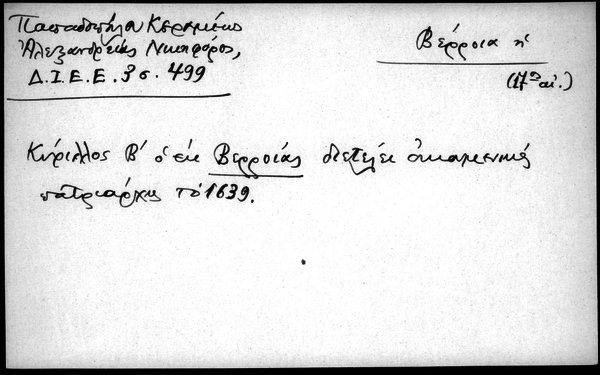 Παπαδοπούλου Κεραμέως
Ἀλεξανδρείας Νικηφόρος,
Δ.Ι.Ε.Ε. 3 σ. 499
Βέρροια ἡ
(17ος αἰ.)
Κύριλλος Β΄ ὁ ἐκ Βερροίας διετέλει οἰκουμενικός
πατριάρχης τὸ 1639.